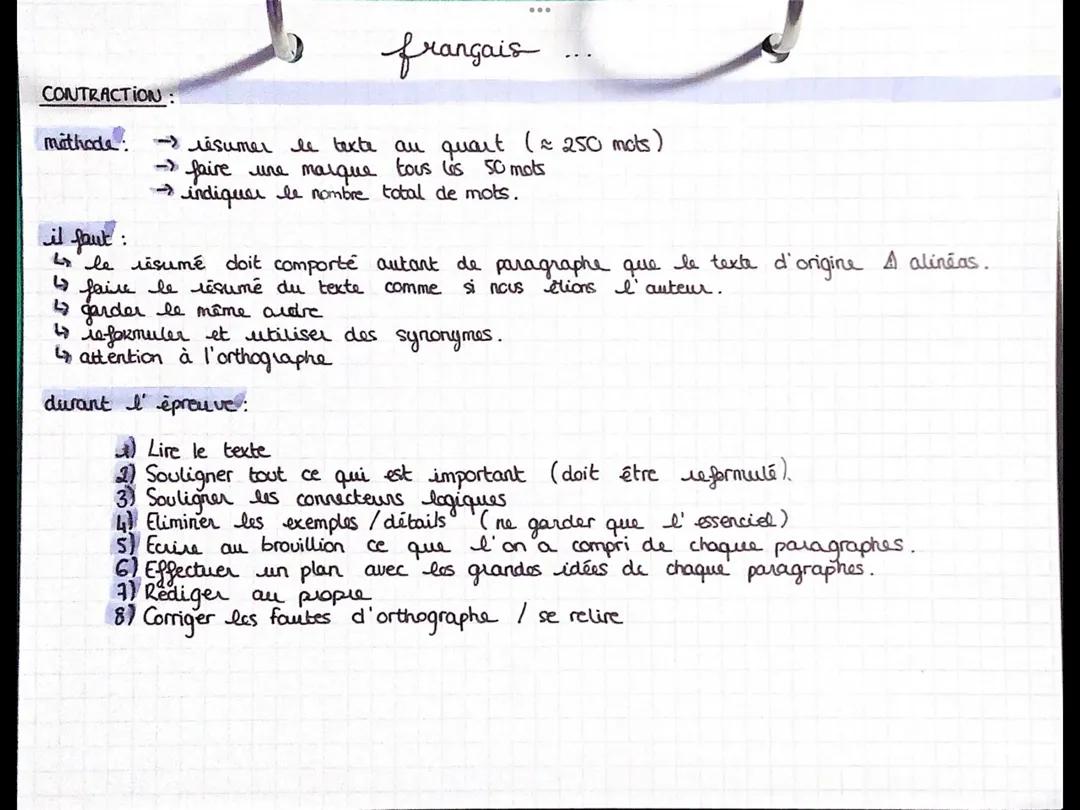 français ...
CONTRACTION :
méthode : → résumer le texte au quart (≈ 250 mots)
→ faire une marque tous les 50 mots
→ indiquer le nombre total de mots.
il faut :
↳ le résumé doit comporté autant de paragraphe que le texte d'origine ⚠ alinéas.
↳ faire le résumé du texte comme si nous étions l'auteur.
↳ garder le même ordre
↳ reformuler et utiliser des synonymes.
↳ attention à l'orthographe
durant l'épreuve :
1) Lire le texte
2) Souligner tout ce qui est important (doit être reformulé).
3) Souligner les connecteurs logiques
4) Eliminer les exemples / détails (ne garder que l'essenciel)
5) Ecrire au brouillion ce que l'on a compri de chaque paragraphes.
6) Effectuer un plan avec les grandes idées de chaque paragraphes.
7) Rédiger au propre
8) Corriger les fautes d'orthographe / se relire